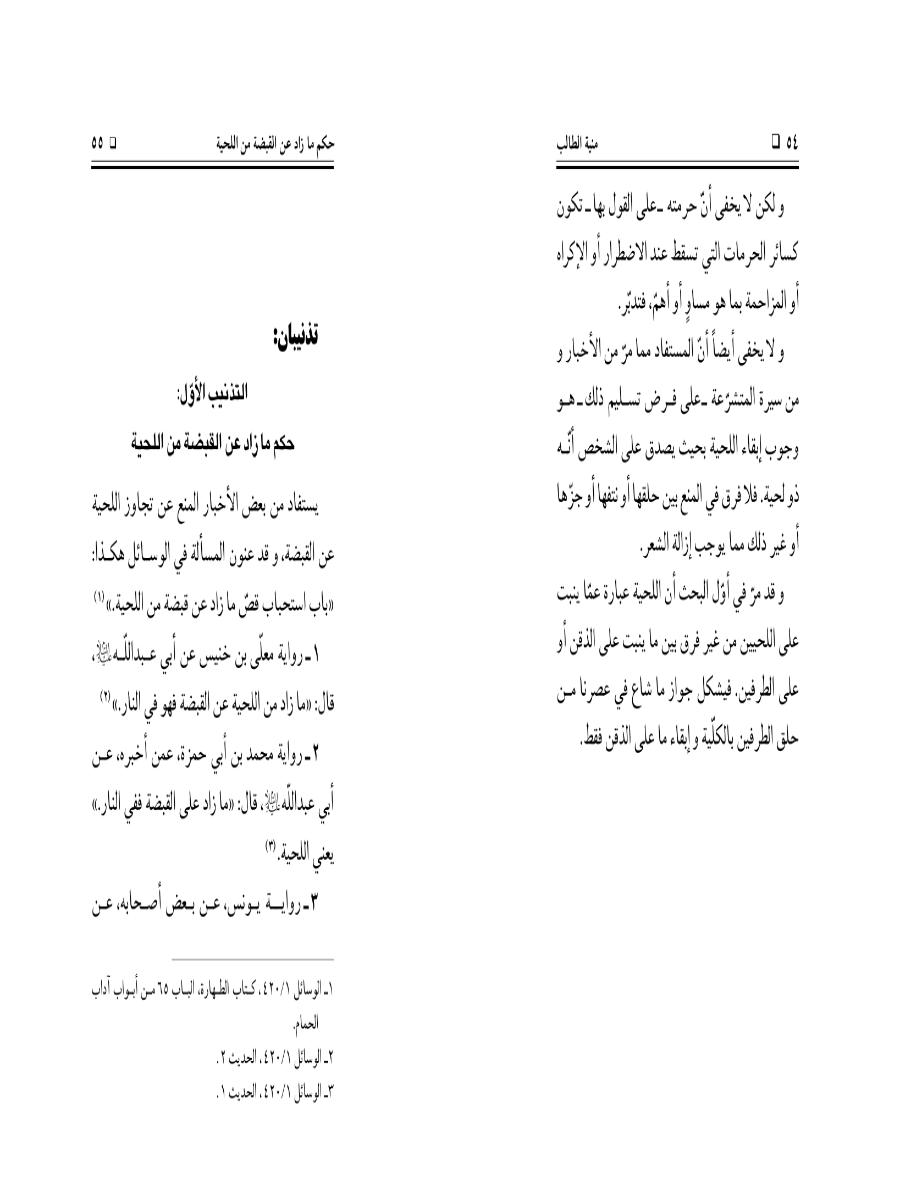 ٥٤ ❑ منية الطالب
و لكن لا يخفى أنّ حرمته ـ على القول بها ـ تكون
كسائر الحرمات التي تسقط عند الاضطرار أو الإكراه
أو المزاحمة بما هو مساوٍ أو أهمّ، فتدبّر.
و لا يخفى أيضاً أنّ المستفاد مما مرّ من الأخبار و
من سيرة المتشرّعة ـ على فرض تسليم ذلك ـ هو
وجوب إبقاء اللحية بحيث يصدق على الشخص أنّه
ذو لحية. فلا فرق في المنع بين حلقها أو نتفها أو جزّها
أو غير ذلك مما يوجب إزالة الشعر.
و قد مرّ في أوّل البحث أن اللحية عبارة عمّا ينبت
على اللحيين من غير فرق بين ما ينبت على الذقن أو
على الطرفين. فيشكل جواز ما شاع في عصرنا من
حلق الطرفين بالكلّية و إبقاء ما على الذقن فقط.
حكم ما زاد عن القبضة من اللحية ❑ ٥٥
تذنيبان:
التذنيب الأوّل:
حكم ما زاد عن القبضة من اللحية
يستفاد من بعض الأخبار المنع عن تجاوز اللحية
عن القبضة، و قد عنون المسألة في الوسائل هكذا:
«باب استحباب قصّ ما زاد عن قبضة من اللحية.»(١)
١ـ رواية معلّى بن خنيس عن أبي عبداللّه عليه السلام،
قال: «ما زاد من اللحية عن القبضة فهو في النار.»(٢)
٢ـ رواية محمد بن أبي حمزة، عمن أخبره، عن
أبي عبداللّه عليه السلام، قال: «ما زاد على القبضة ففي النار.»
يعني اللحية.(٣)
٣ـ رواية يونس، عن بعض أصحابه، عن
١ـ الوسائل ٤٢٠/١، كتاب الطهارة، الباب ٦٥ من أبواب آداب
الحمام.
٢ـ الوسائل ٤٢٠/١، الحديث ٢.
٣ـ الوسائل ٤٢٠/١، الحديث ١.